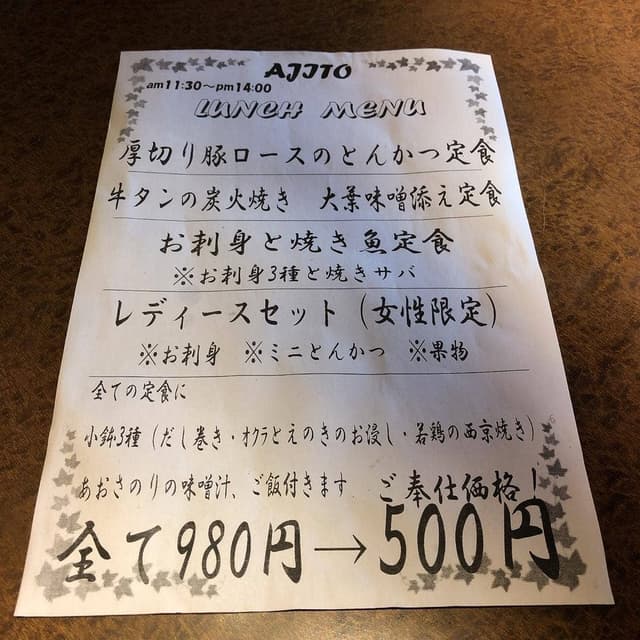 AJITO
am11:30～pm14:00
LUNCH MENU
厚切り豚ロースのとんかつ定食
牛タンの炭火焼き　大葉味噌添え定食
お刺身と焼き魚定食
※お刺身3種と焼きサバ
レディースセット（女性限定）
※お刺身　※ミニとんかつ　※果物
全ての定食に
小鉢3種（だし巻き・オクラとえのきのお浸し・若鶏の西京焼き）
あおさのりの味噌汁、ご飯付きます　ご奉仕価格！
全て980円→500円